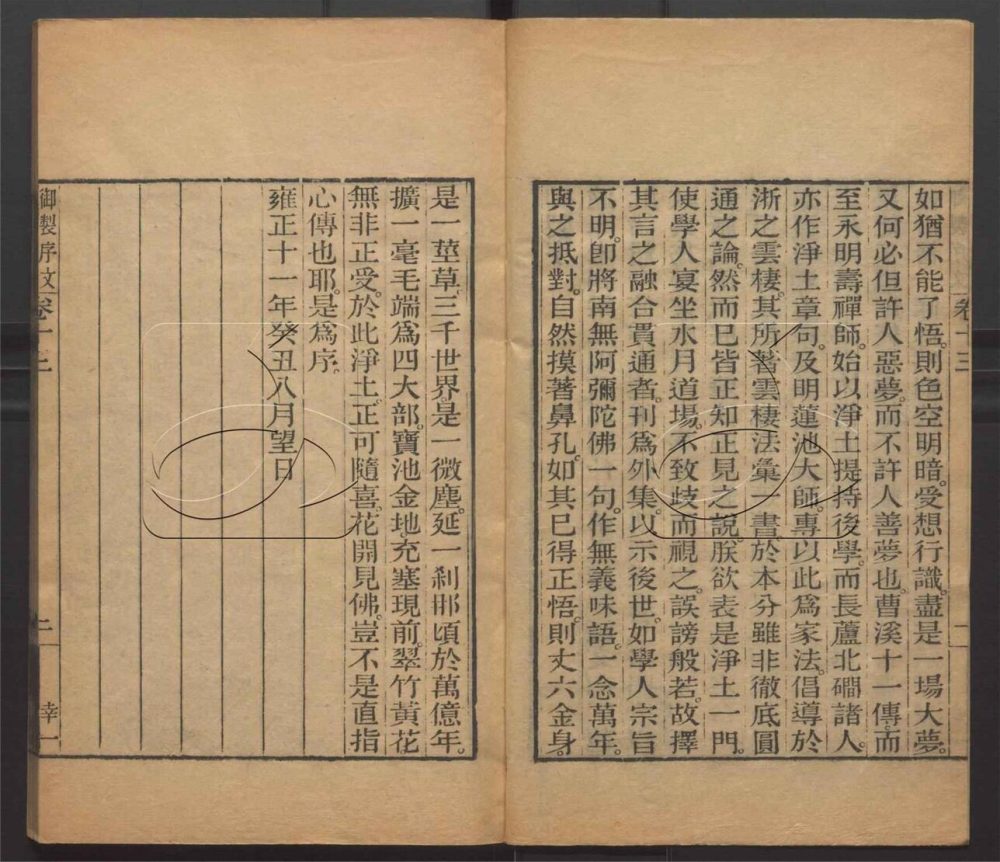 如猶不能了悟。則色空明暗。受想行識。盡是一場大夢。
又何必但許人惡夢。而不許人善夢也。曹溪十一傳。而
至永明壽禪師。始以淨土提持後學。而長蘆北磵諸人。
亦作淨土章句。及明蓮池大師。專以此爲家法。倡導於
浙之雲棲。其所著雲棲法彙一書。於本分雖非徹底圓
通之論。然而已皆正知正見之說。朕欲表是淨土一門。
使學人宴坐水月道場。不致歧而視之。誤謗般若。故擇
其言之融合貫通者。刊爲外集。以示後世。如學人宗旨
不明。卽將南無阿彌陀佛一句。作無義味語。一念萬年。
與之抵對。自然摸著鼻孔。如其已得正悟。則丈六金身。
卷十三
二
是一莖草。三千世界。是一微塵。延一刹那頃於萬億年。
擴一毫毛端爲四大部。寶池金地。充塞現前。翠竹黃花
無非正受。於此淨土。正可隨喜。花開見佛。豈不是直指
心傳也耶。是爲序。
雍正十一年癸丑八月望日
御製序文 卷十三
二
幸一